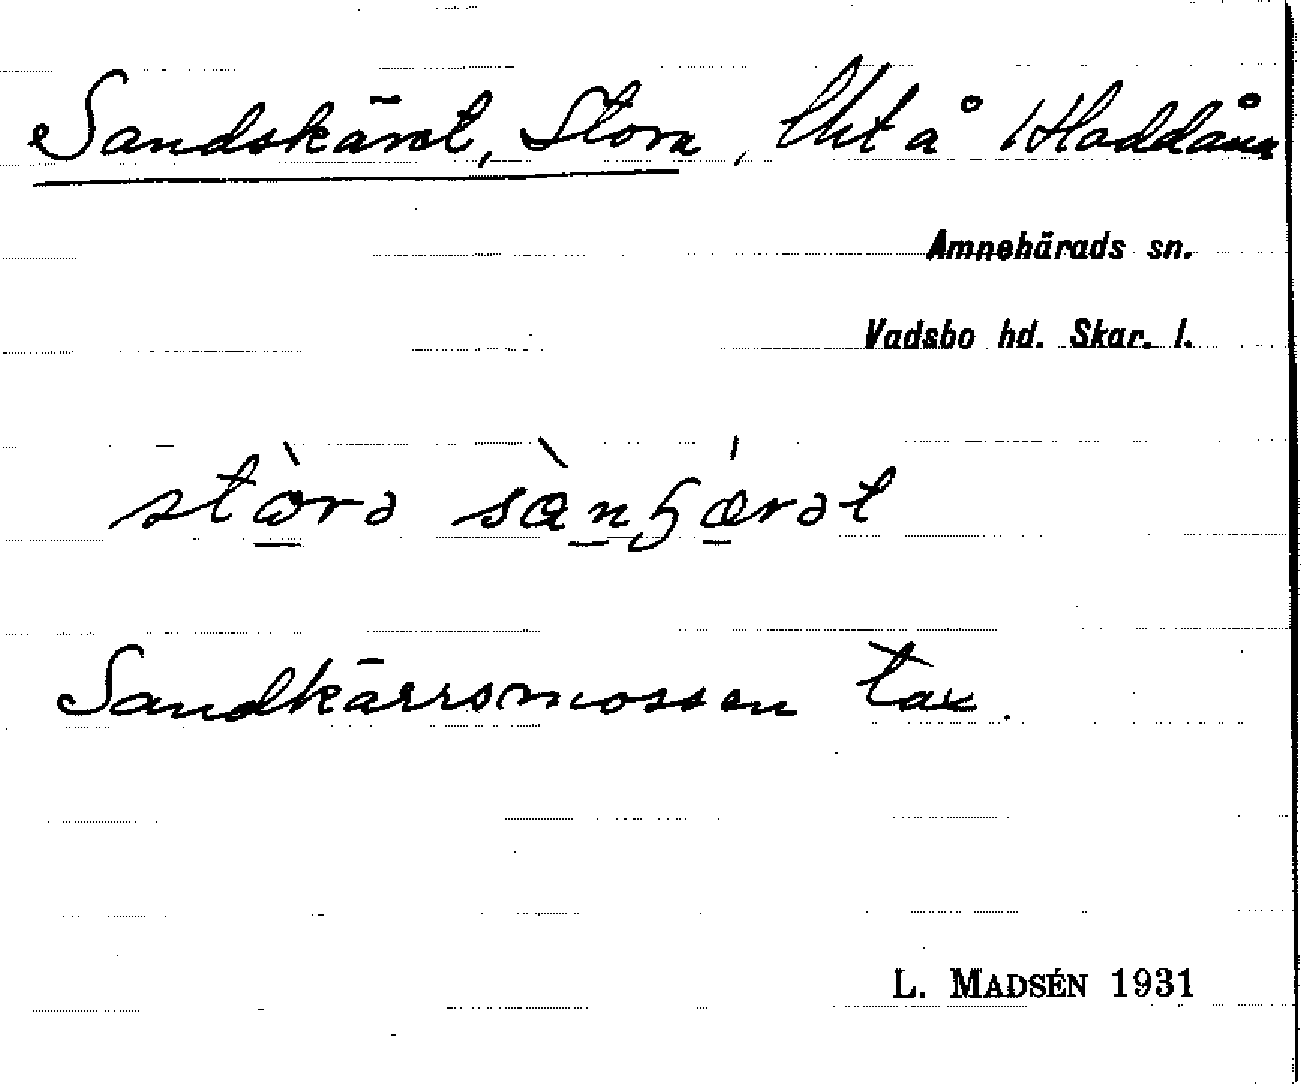 Sandskäret, Stora, Utt å Hoddåsa
Amnehärads sn.
Vadsbo hd. Skar. l.
stòrə sànʃǽrət
Sandkärrsmossen tax.
L. MADSÉN 1931